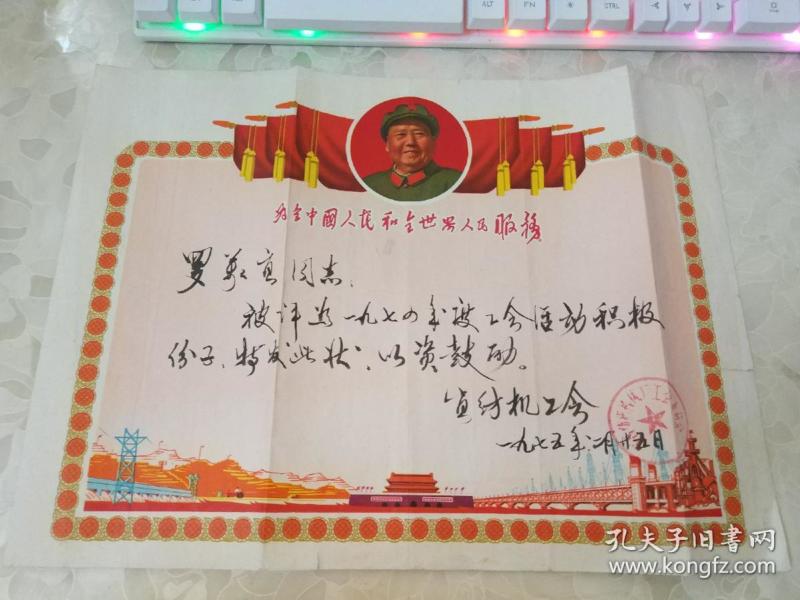 ALT
FN
CTRL
为全中國人民和全世界人民服務
罗 同志:
被评为一九七四年度工会活动积极
份子、特发此状、以资鼓励。
纺机工会
一九七五年二月廿五日
孔夫子旧書网
www.kongfz.com